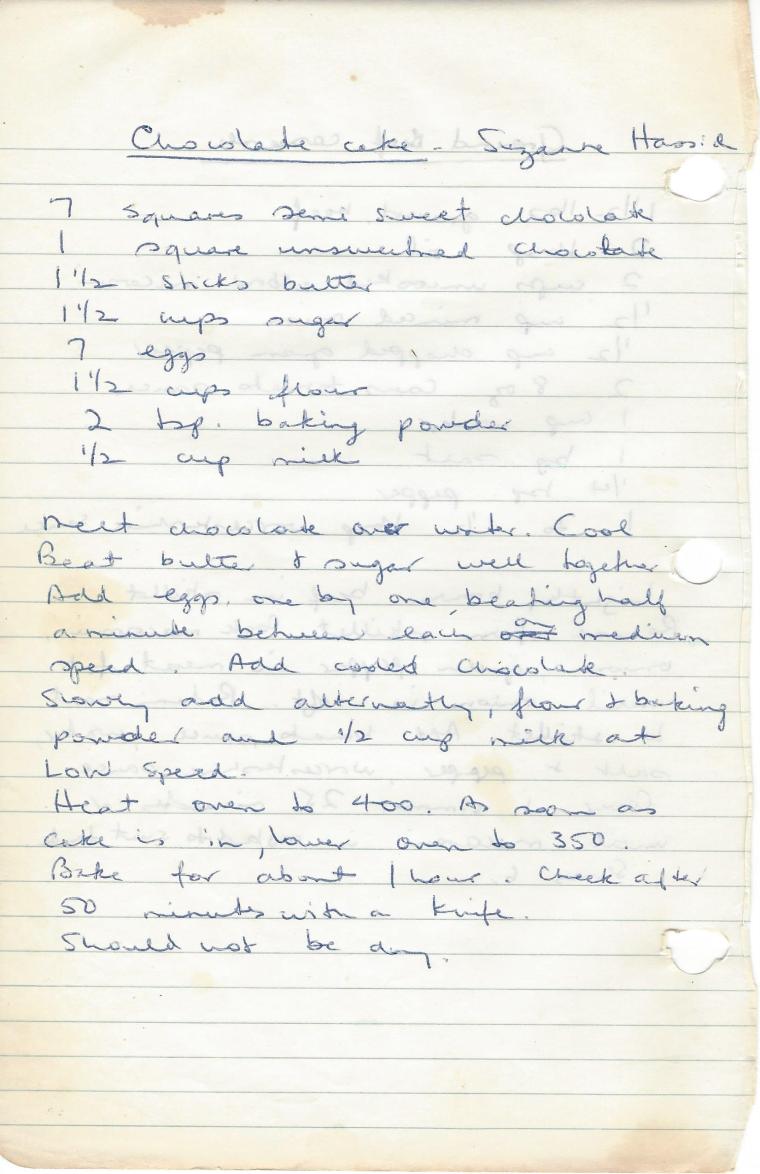 Chocolate cake - Suzanne
7 squares semi sweet chocolate
1 square unsweetned chocolate
1 1/2 sticks butter
1 1/2 cups sugar
7 eggs
1 1/2 cups flour
2 tsp. baking powder
1/2 cup milk
Melt chocolate over water. Cool
Beat butter & sugar well together
Add eggs, one by one, beating half
a minute between each on medium
speed. Add cooled chocolate.
Slowly add alternatly, flour & baking
powder and 1/2 cup milk at
LOW Speed.
Heat oven to 400. As soon as
cake is in, lower oven to 350.
Bake for about 1 hour. Check after
50 minutes with a knife.
Should not be dry.